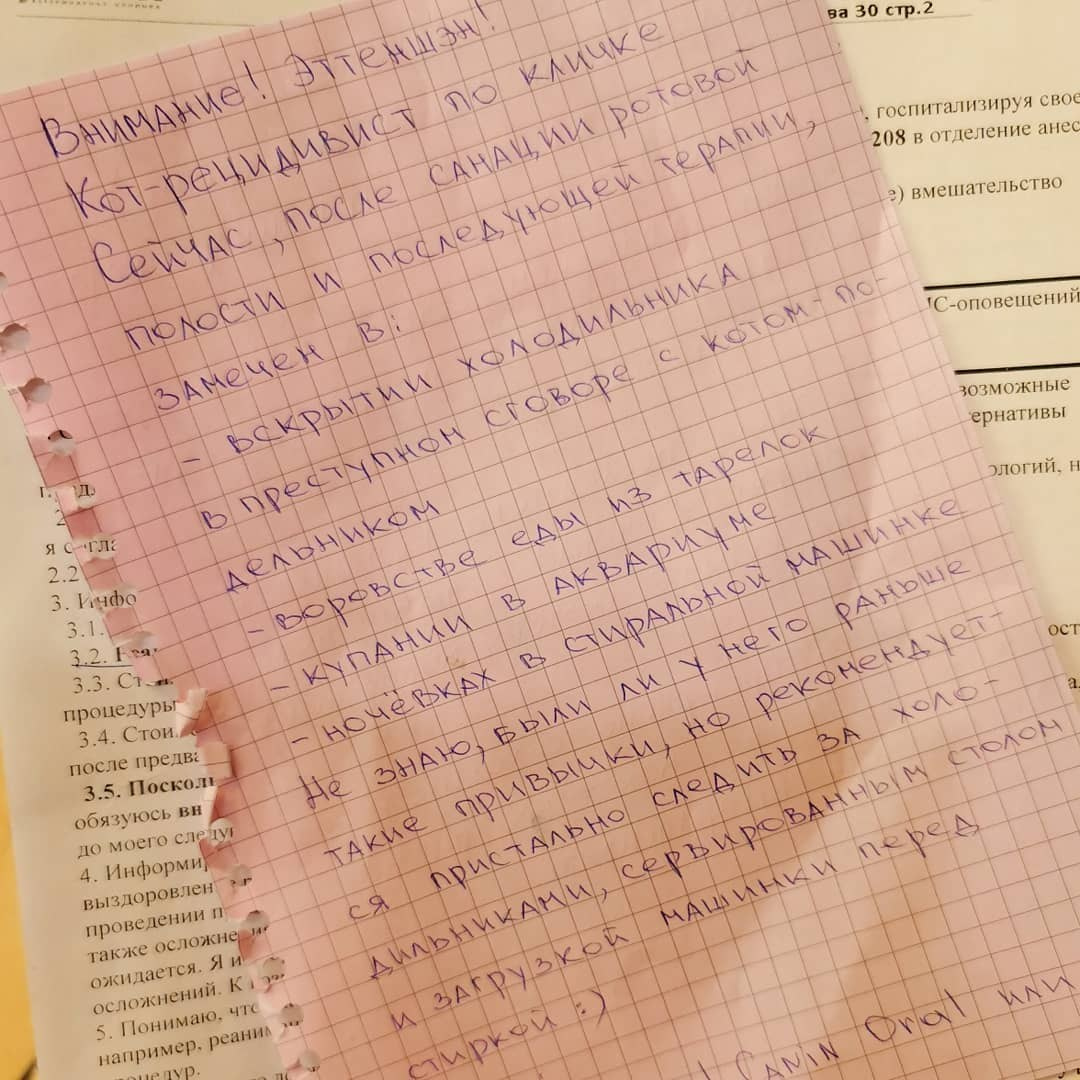 ва 30 стр.2
Внимание! Эттеншэн!
Кот-рецидивист по кличке
Сейчас, после санации ротовой
полости и последующей терапии,
замечен в:
- вскрытии холодильника
в преступном сговоре с котом-по-
дельником
- воровстве еды из тарелок
- купании в аквариуме
- ночёвках в стиральной машинке
Не знаю, были ли у него раньше
такие привычки, но рекомендует-
ся пристально следить за холо-
дильниками, сервированным столом
и загрузкой машинки перед
стиркой :)
Canin Oral или
, госпитализируя свое
208 в отделение анес
е) вмешательство
МС-оповещений
возможные
тернативы
ологий, н
ост
2.2
3. Инфо
3.1.
3.2.
3.3. Ст
процедуры
3.4. Стои
после предва
3.5. Посколь
обязуюсь вн
до моего следу
4. Информи
выздоровлен
проведении п
также осложне
ожидается. Я и
осложнений. К
5. Понимаю, что
например, реани
процедур.